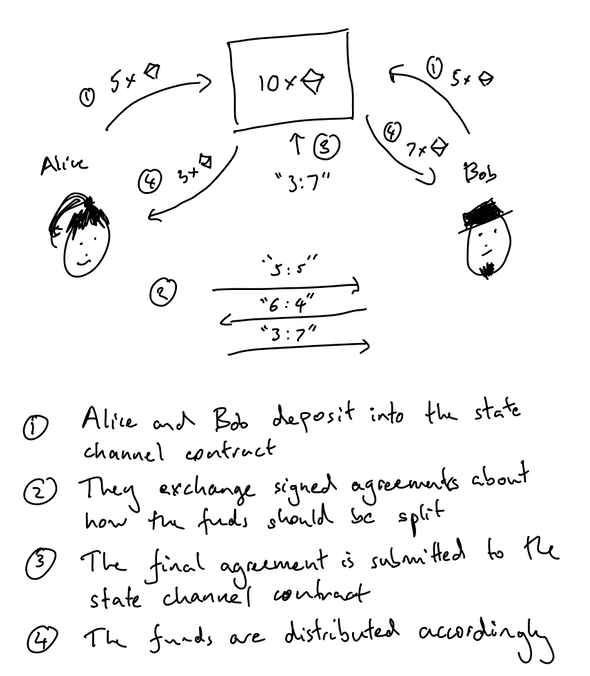 ① 5x
10x
① 5x
④ 3x
↑ ③
④ 7x
Alice
"3:7"
Bob
②
"5:5"
"6:4"
"3:7"
① Alice and Bob deposit into the state
channel contract
② They exchange signed agreements about
how the funds should be split
③ The final agreement is submitted to the
state channel contract
④ The funds are distributed accordingly